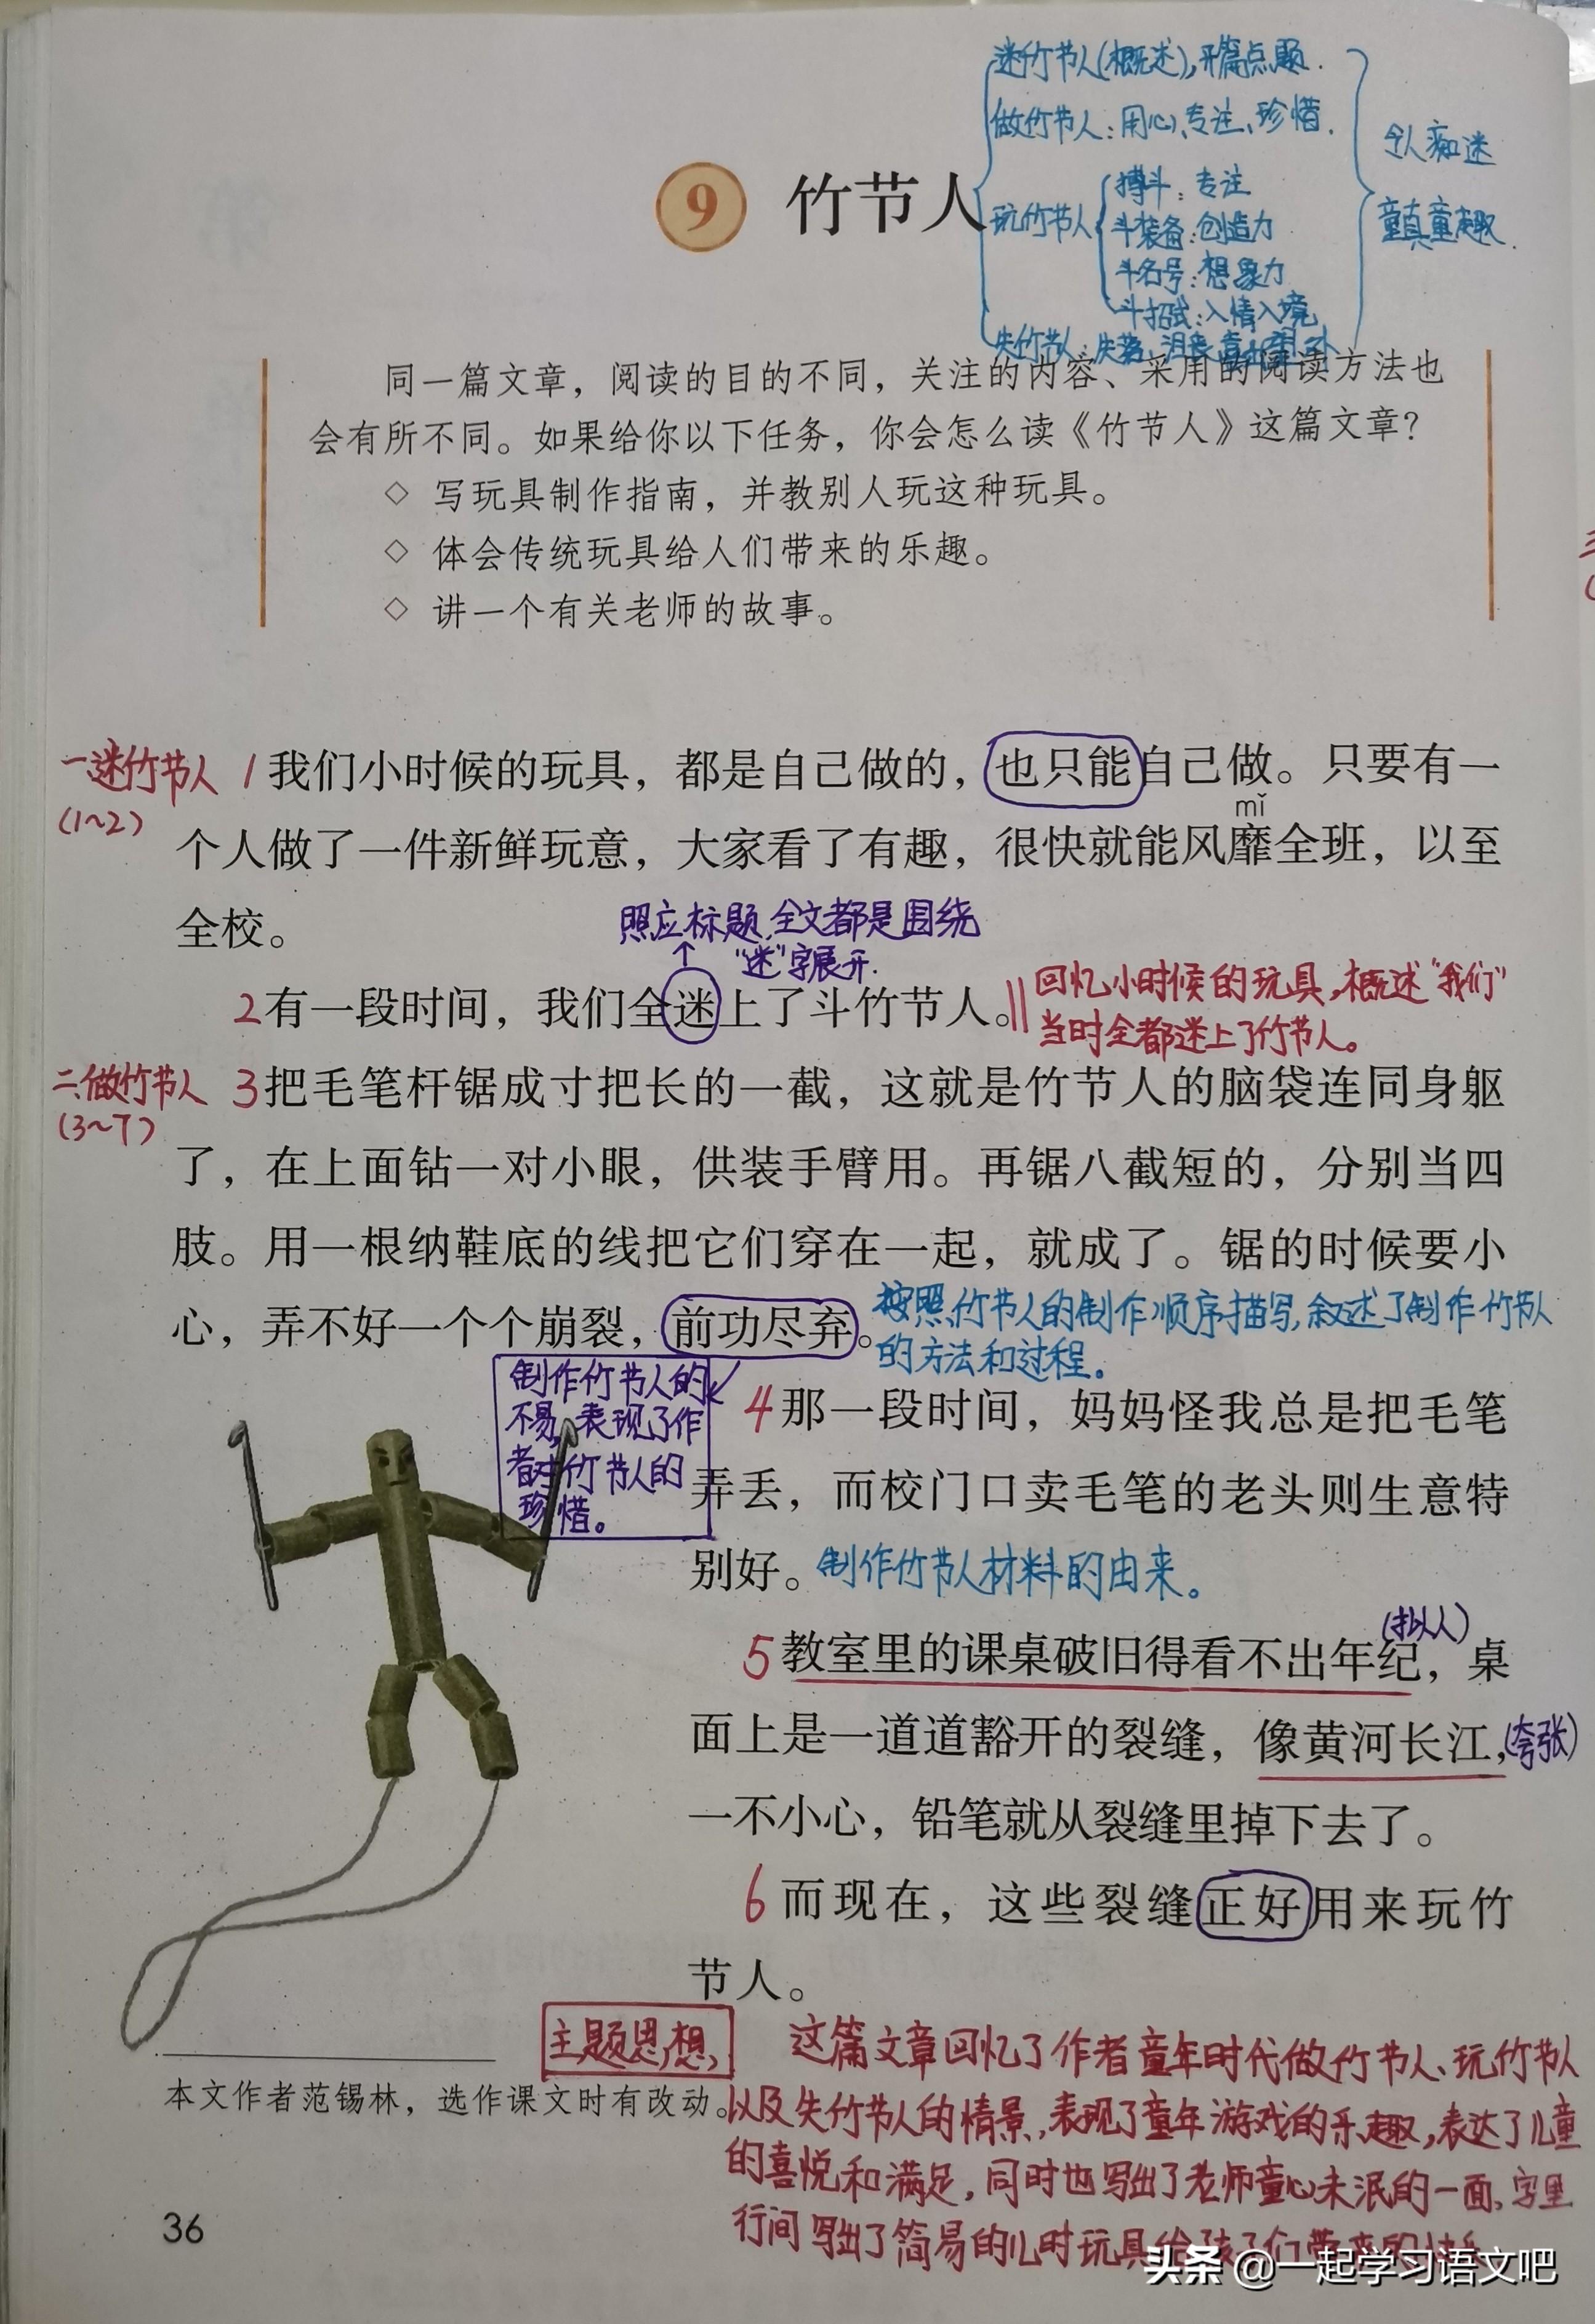 迷竹节人(概述),开篇点题.
做竹节人:用心、专注、珍惜.
玩竹节人
搏斗:专注
斗装备:创造力
斗名号:想象力
斗招式:入情入境
失竹节人:失落、沮丧、喜出望外
令人痴迷
童真童趣.
9 竹节人
同一篇文章，阅读的目的不同，关注的内容、采用的阅读方法也
会有所不同。如果给你以下任务，你会怎么读《竹节人》这篇文章？
◇ 写玩具制作指南，并教别人玩这种玩具。
◇ 体会传统玩具给人们带来的乐趣。
◇ 讲一个有关老师的故事。
一、迷竹节人
(1~2)
1 我们小时候的玩具，都是自己做的，也只能自己做。只要有一
mǐ
个人做了一件新鲜玩意，大家看了有趣，很快就能风靡全班，以至
全校。
照应标题,全文都是围绕
"迷"字展开.
2 有一段时间，我们全迷上了斗竹节人。
回忆小时候的玩具,概述"我们"
当时全都迷上了竹节人。
二、做竹节人
(3~7)
3 把毛笔杆锯成寸把长的一截，这就是竹节人的脑袋连同身躯
了，在上面钻一对小眼，供装手臂用。再锯八截短的，分别当四
肢。用一根纳鞋底的线把它们穿在一起，就成了。锯的时候要小
心，弄不好一个个崩裂，前功尽弃。
按照竹节人的制作顺序描写,叙述了制作竹节人
的方法和过程。
制作竹节人的
不易,表现了作
者对竹节人的
珍惜。
4 那一段时间，妈妈怪我总是把毛笔
弄丢，而校门口卖毛笔的老头则生意特
别好。
制作竹节人材料的由来。
(拟人)
5 教室里的课桌破旧得看不出年纪，桌
面上是一道道豁开的裂缝，像黄河长江，
(夸张)
一不小心，铅笔就从裂缝里掉下去了。
6 而现在，这些裂缝正好用来玩竹
节人。
主题思想
这篇文章回忆了作者童年时代做竹节人、玩竹节人
以及失竹节人的情景,表现了童年游戏的乐趣,表达了儿童
的喜悦和满足,同时也写出了老师童心未泯的一面,字里
行间写出了简易的儿时玩具给孩子们带来的快乐
本文作者范锡林，选作课文时有改动。
36
头条 @一起学习语文吧